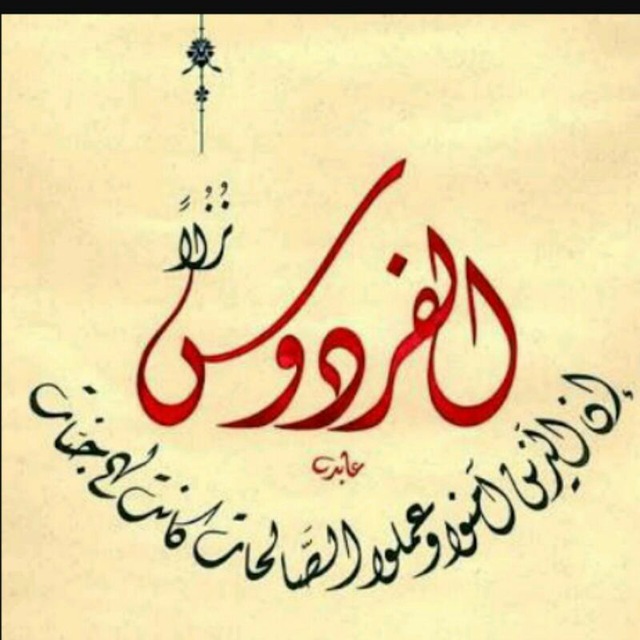 إن الذين آمنوا وعملوا الصَّالحات كانت لهم جنات
الفردوس
نُزُلاً
عابد